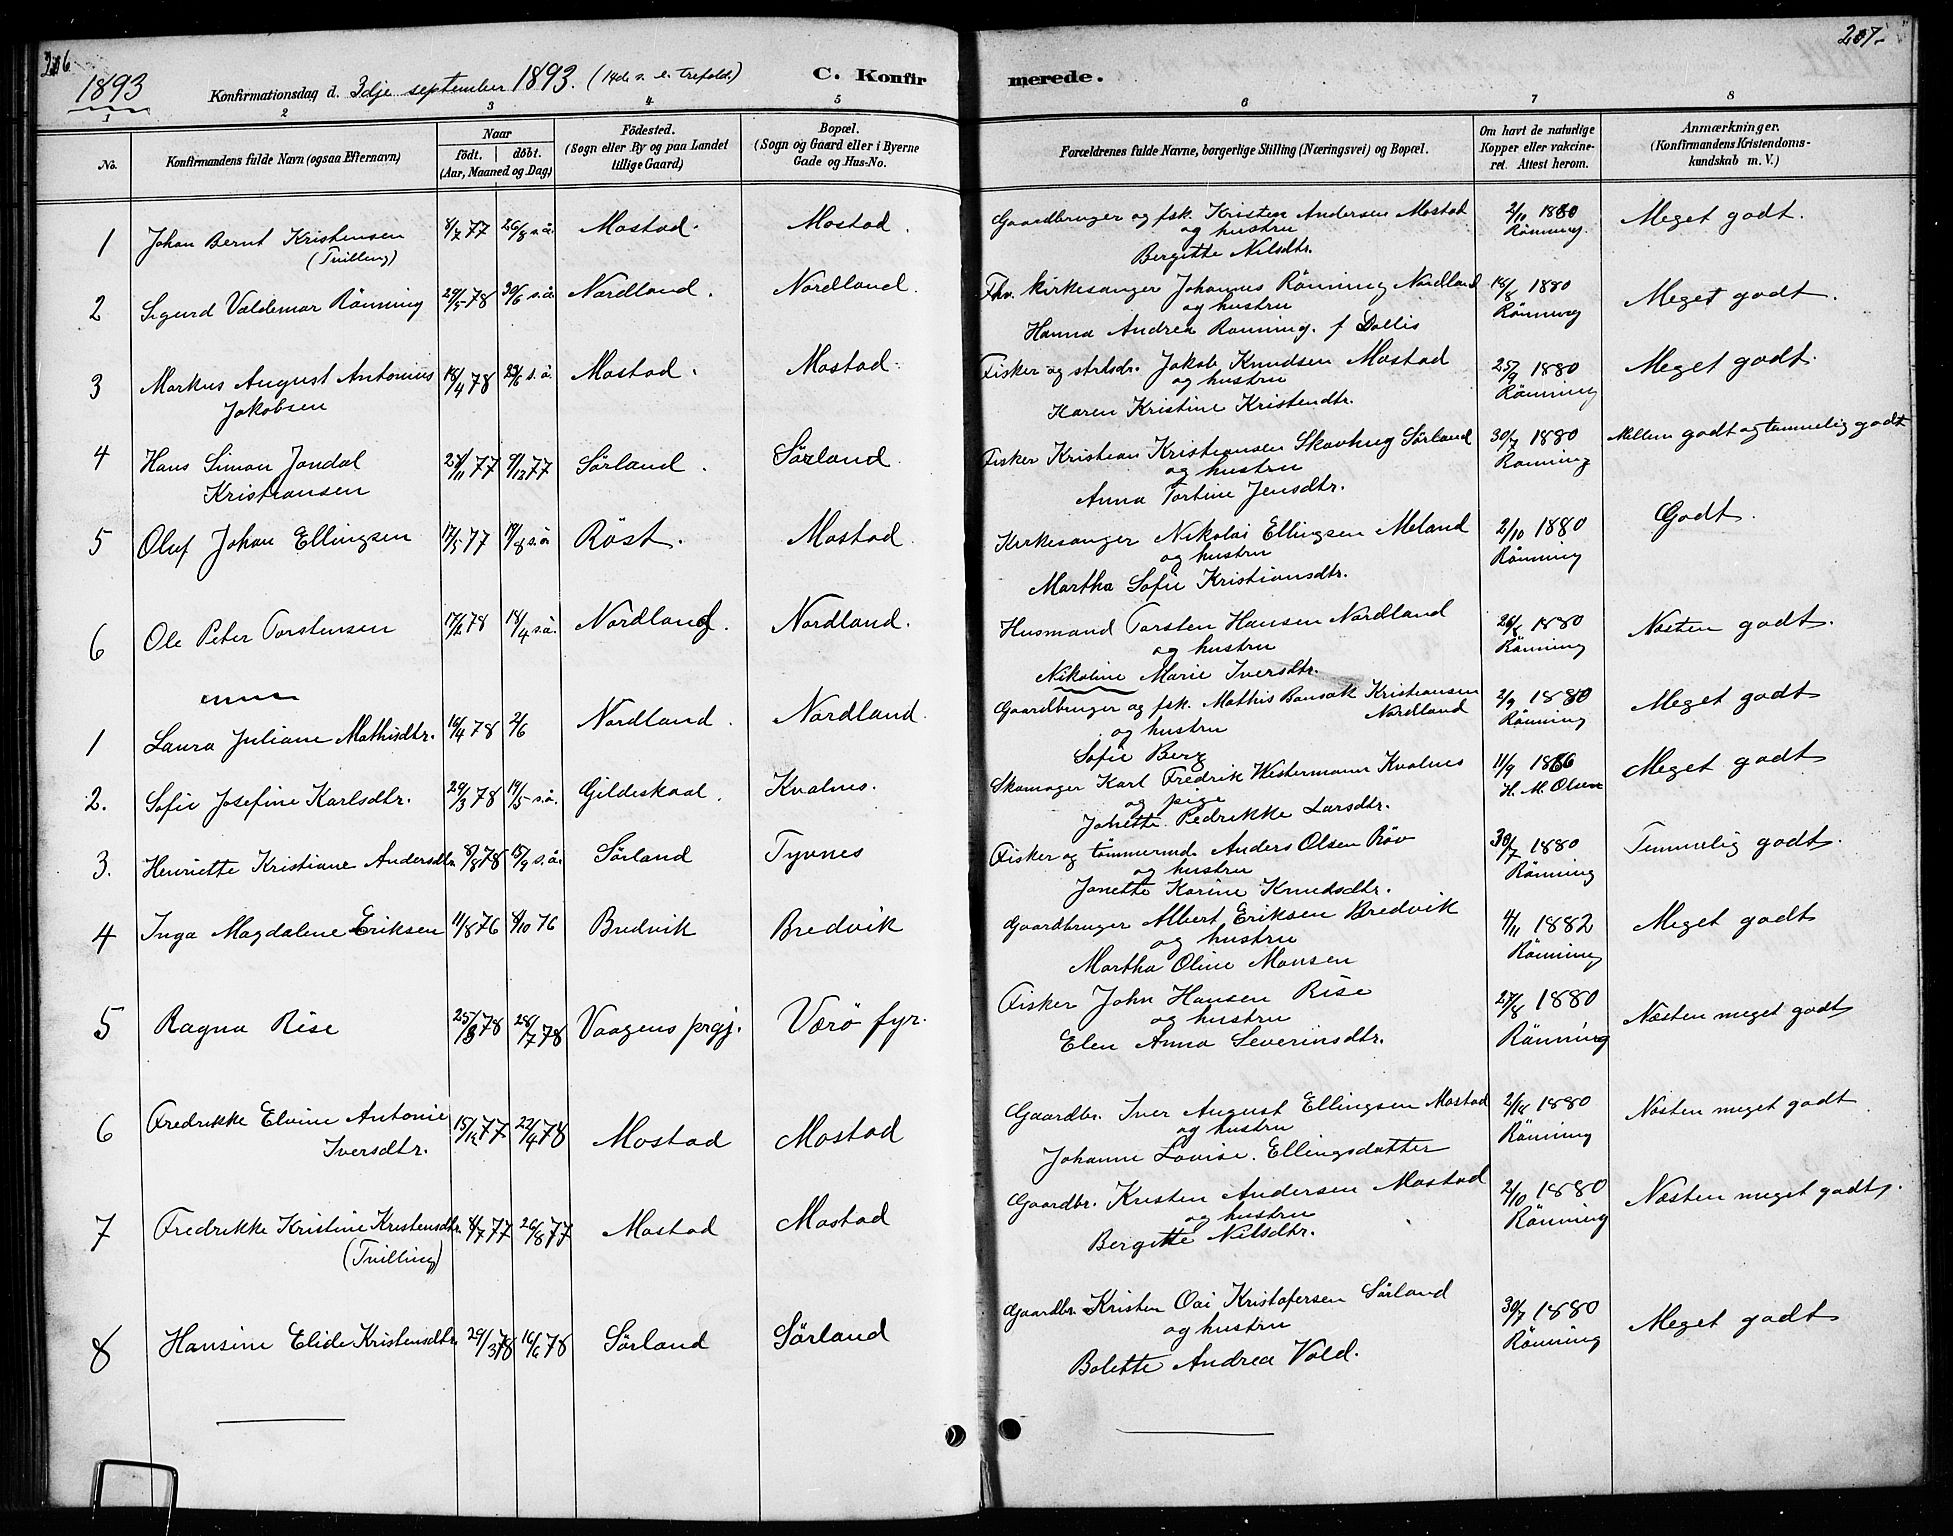 206
207-
1893
Konfirmationsdag d. 3dje september 1893. (14de s. e. trefold.)
C. Konfirmerede.
1 2 3 4 5 6 7 8
No.
Konfirmandens fulde Navn (ogsaa Efternavn)
Naar
födt. | döbt.
(Aar, Maaned og Dag)
Födested.
(Sogn eller By og paa Landet
tillige Gaard)
Bopæl.
(Sogn og Gaard eller i Byerne
Gade og Hus-No.
Forældrenes fulde Navne, borgerlige Stilling (Næringsvei) og Bopæl.
Om havt de naturlige
Kopper eller vakcine-
ret. Attest herom.
Anmærkninger.
(Konfirmandens Kristendoms-
kundskab m. V.)
1 Johan Bernt Kristensen 8/7 77 26/8 s.å. Mostad. Mostad. Gaardbruger og fsk. Kristen Andersen Mostad 2/10 1880 Meget godt.
(Tvilling) og hustru Rönning.
Bergitte Nilsdtr.
2 Sigurd Valdemar Rönning 29/5 78 30/6 s.å. Nordland. Nordland. Fhv. kirkesanger Johannes Rönning Nordland 18/8 1880 Meget godt.
og hustru Rönning
Hanna Andrea Rönning. f
3 Markus August Antonius 18/4 78 23/6 s.å. Mostad. Mostad. Fisker og strtsdr. Jakob Knudsen Mostad 25/9 1880 Meget godt.
Jakobsen og hustru Rönning
Karen Kristine Kristendtr.
4 Hans Simon Jondal 27/11 77 9/12 77 Sörland. Sörland. Fisker Kristian Kristiansen Skavhug Sörland 30/7 1880 Mellem godt og temmelig godt
Kristiansen og hustru Rönning
Anna Tortine Jensdtr.
5 Oluf Johan Ellingsen 17/5 77 19/8 s.å. Röst. Mostad. Kirkesanger Nikolai Ellingsen Meland 2/10 1880 Godt.
og hustru Rönning
Martha Sofie Kristiansdtr.
6 Ole Peter Torstensen 17/2 78 18/4 s.å. Nordland. Nordland. Husmand Torsten Hansen Nordland 26/8 1880 Næsten godt.
og hustru Rönning
Nikoline Marie Iversdtr.
1 Laura Juliane Mathisdtr. 16/4 78 2/6 Nordland. Nordland. Gaardbruger og fsk. Mathis Bansak Kristiansen 2/9 1880 Meget godt
og hustru Nordland Rönning
Sofie Berg
2. Sofie Josefine Karlsdtr. 29/3 78 19/5 s.å. Gildeskaal. Kvalnes. Skomager Karl Fredrik Westermann Kvalnes 11/9 1886 Meget godt
og pige H. M. Olsen
Jonette Pedrikke Larsdtr.
3. Henriette Kristiane Andersdtr. 8/8 78 15/9 s.å. Sörland Tyvnes Fisker og tömmermd. Anders Olsen Röv 30/7 1880 Temmelig godt.
og hustru Rönning
Jonette Karine Knudsdtr.
4 Inga Magdalene Eriksen 11/8 76 8/10 76 Bredvik Bredvik Gaardbruger Albert Eriksen Bredvik 4/11 1882 Meget godt
og hustru Rönning
Martha Oline Monsen
5 Ragna Rise 25/3 78 28/7 78 Vaagens prgj. Værö fyr. Fisker John Hansen Rise 27/8 1880 Næsten meget godt
og hustru Rönning
Elen Anna Severinsdtr.
6 Fredrikke Elvine Antonie 15/12 77 22/4 78 Mostad Mostad Gaardbr. Iver August Ellingsen Mostad 1880 Næsten meget godt.
Iversdtr. og hustru Rönning
Johanne Lovise. Ellingsdatter
7 Fredrikke Kristine Kristensdtr. 8/7 77 26/8 77 Mostad Mostad Gaardbr. Kristen Andersen Mostad 2/10 1880 Næsten meget godt.
(Tvilling) og hustru Rönning
Bergitte Nilsdtr.
8 Hansine Elide Kristensdtr. 29/3 78 16/6 78 Sörland Sörland Gaardbr. Kristen Oai Kristofersen Sörland 30/7 1880 Meget godt
og hustru Rönning
Bolette Andrea Vold.